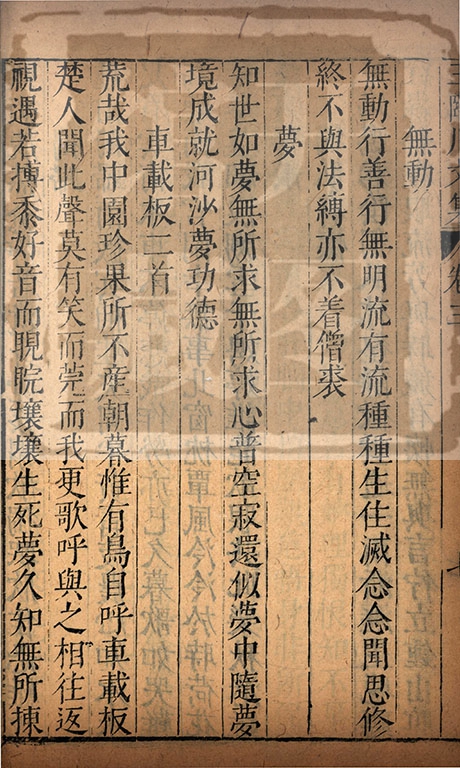 王臨川文集 卷三
無動
無動行善行無明流有流種種生住滅念念聞思修
終不與法縛亦不着僧裘
夢
知世如夢無所求無所求心普空寂還似夢中隨夢
境成就河沙夢功德
車載板二首
荒哉我中園珍果所不産朝暮惟有鳥自呼車載板
楚人聞此聲莫有笑而莞而我更歌呼與之相往返
視遇若摶黍好音而睍睆壤壤生死夢久知無所揀